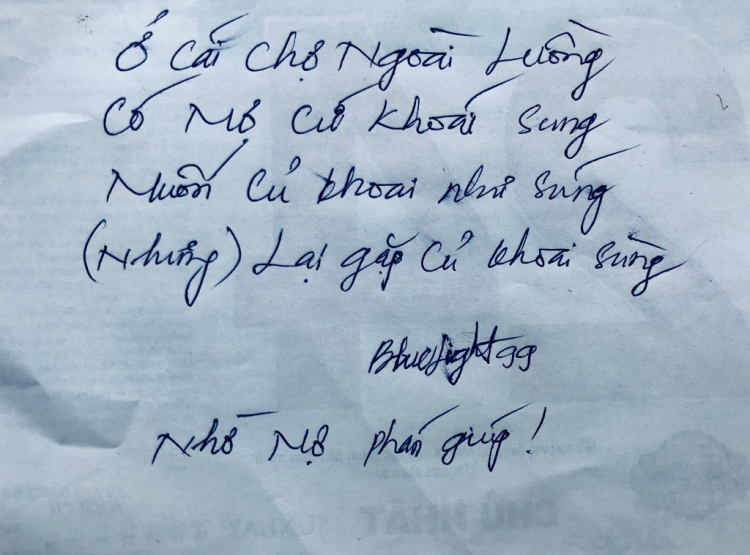 Ở cái chợ Ngoài Luồng
Có Mợ cứ khoái sung
Muốn củ khoai như súng
(Nhưng) Lại gặp củ khoai sùng
Bluelight99
Nhờ Mợ phán giúp!
CHỦ NHẬT SUNDAY